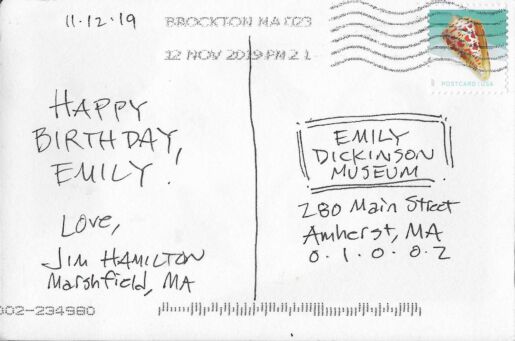 11.12.19
BROCKTON MA 023
12 NOV 2019 PM 2 L
POSTCARD | USA
HAPPY
BIRTHDAY,
EMILY!
Love,
JIM HAMILTON
Marshfield, MA
EMILY
DICKINSON
MUSEUM
280 Main Street
Amherst, MA
0.1.0.0.2
002-234980